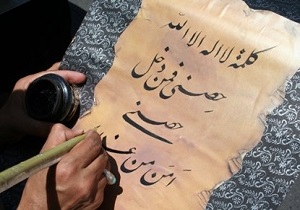 كلمة لا اله الا الله
حصنی فمن دخل
حصنی
امن من عذا